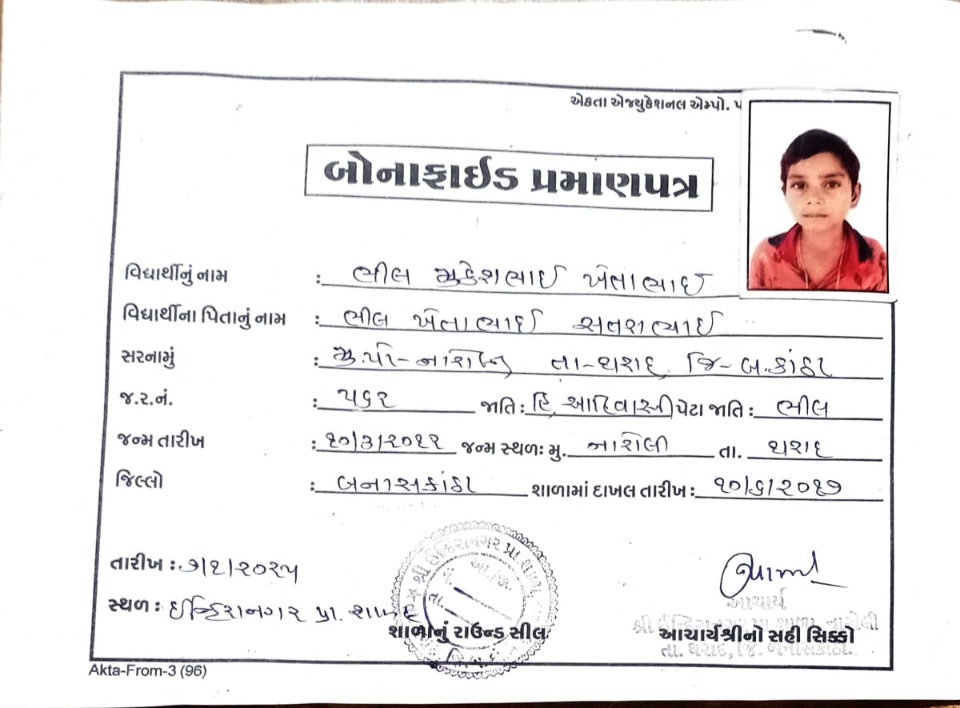 એકતા એજ્યુકેશનલ એમ્પો. પ
બોનાફાઈડ પ્રમાણપત્ર
વિદ્યાર્થીનું નામ : ભીલ મુકેશભાઈ ખેતાભાઈ
વિદ્યાર્થીના પિતાનું નામ : ભીલ ખેતાભાઈ
સરનામું : મુ.પો-નારોલી તા-થરાદ જિ-બ.કાંઠા
જ.ર.નં. : ૫૬૨ જાતિ : હિં આદિવાસી પેટા જાતિ : ભીલ
જન્મ તારીખ : જન્મ સ્થળઃ મુ. નારોલી તા. થરાદ
જિલ્લો : બનાસકાંઠા શાળામાં દાખલ તારીખ :
તારીખ :
સ્થળ : ઈન્દિરાનગર પ્રા. શાળા
શ્રી ઈન્દિરાનગર પ્રા શાળા
તા.
શાળાનું રાઉન્ડ સીલ
આચાર્ય
તા. થરાદ, જિ. બનાસકાંઠા.
આચાર્યશ્રીનો સહી સિક્કો
Akta-From-3 (96)